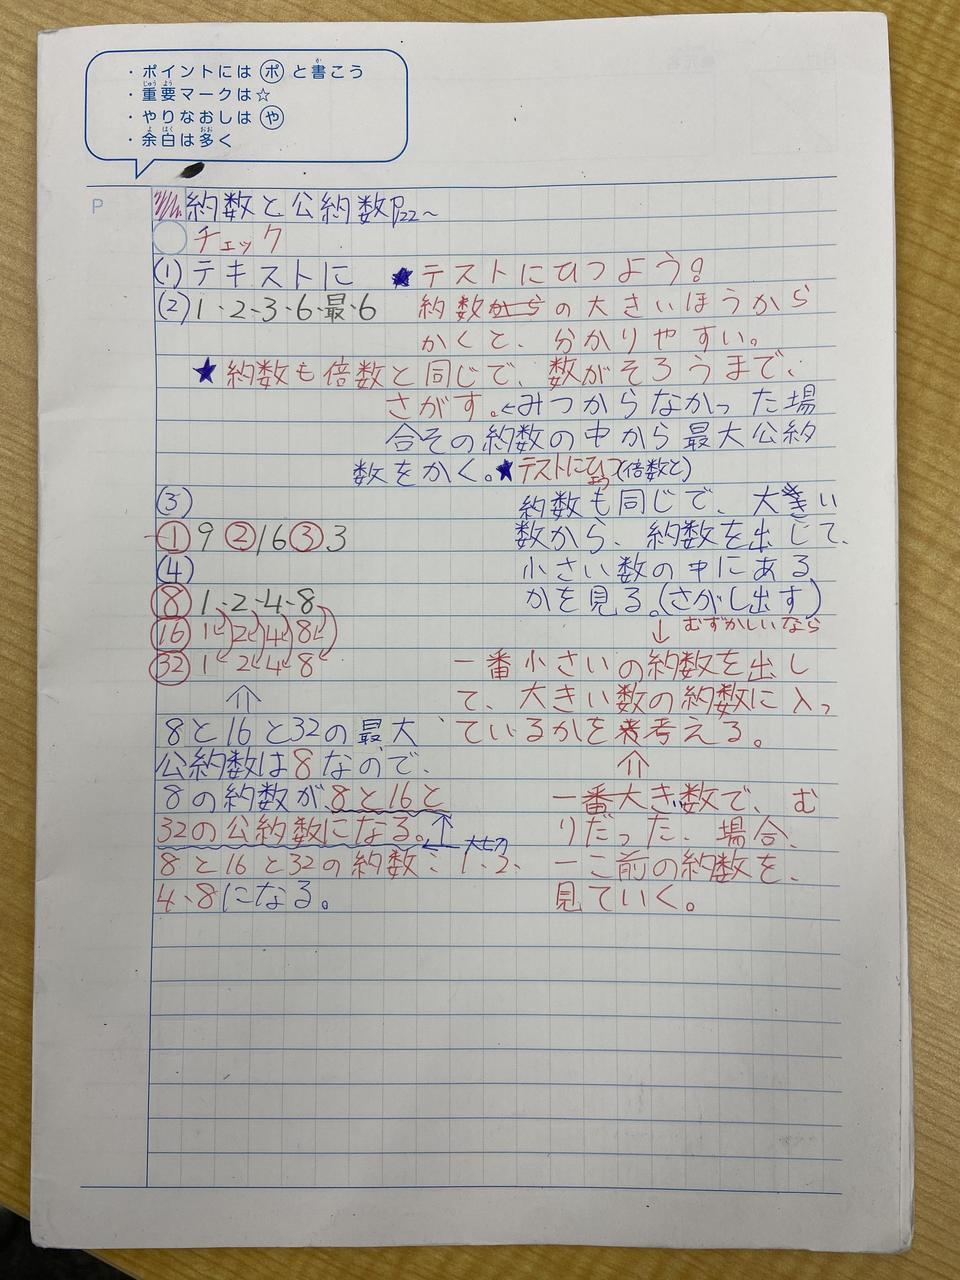 ・ポイントには ポ と書こう
・重要マークは☆
・やりなおしは や
・余白は多く
P
約数と公約数P22~
チェック
(1)テキストに ★テストにひつよう?
(2)1、2、3、6、最、6 約数から の大きいほうから
かくと、分かりやすい。
★約数も倍数と同じで、数がそろうまで、
さがす。←みつからなかった場
合その約数の中から最大公約
数をかく。★テストにひつよう(倍数と)
(3) 約数も同じで、大きい
①9 ②16 ③3 数から、約数を出して、
(4) 小さい数の中にある
⑧ 1、2、4、8 かを見る。(さがし出す)
⑯ 1 2 4 8 ↓ むずかしいなら
㉜ 1 2 4 8 一番小さいの約数を出し
⇑ て、大きい数の約数に入っ
8と16と32の最大 ているかを考える。
公約数は8なので、 ⇑
8の約数が8と16と 一番大き数で、む
32の公約数になる。↑ りだった、場合、
←大切
8と16と32の約数: 1、2、 一こ前の約数を、
4、8になる。 見ていく。